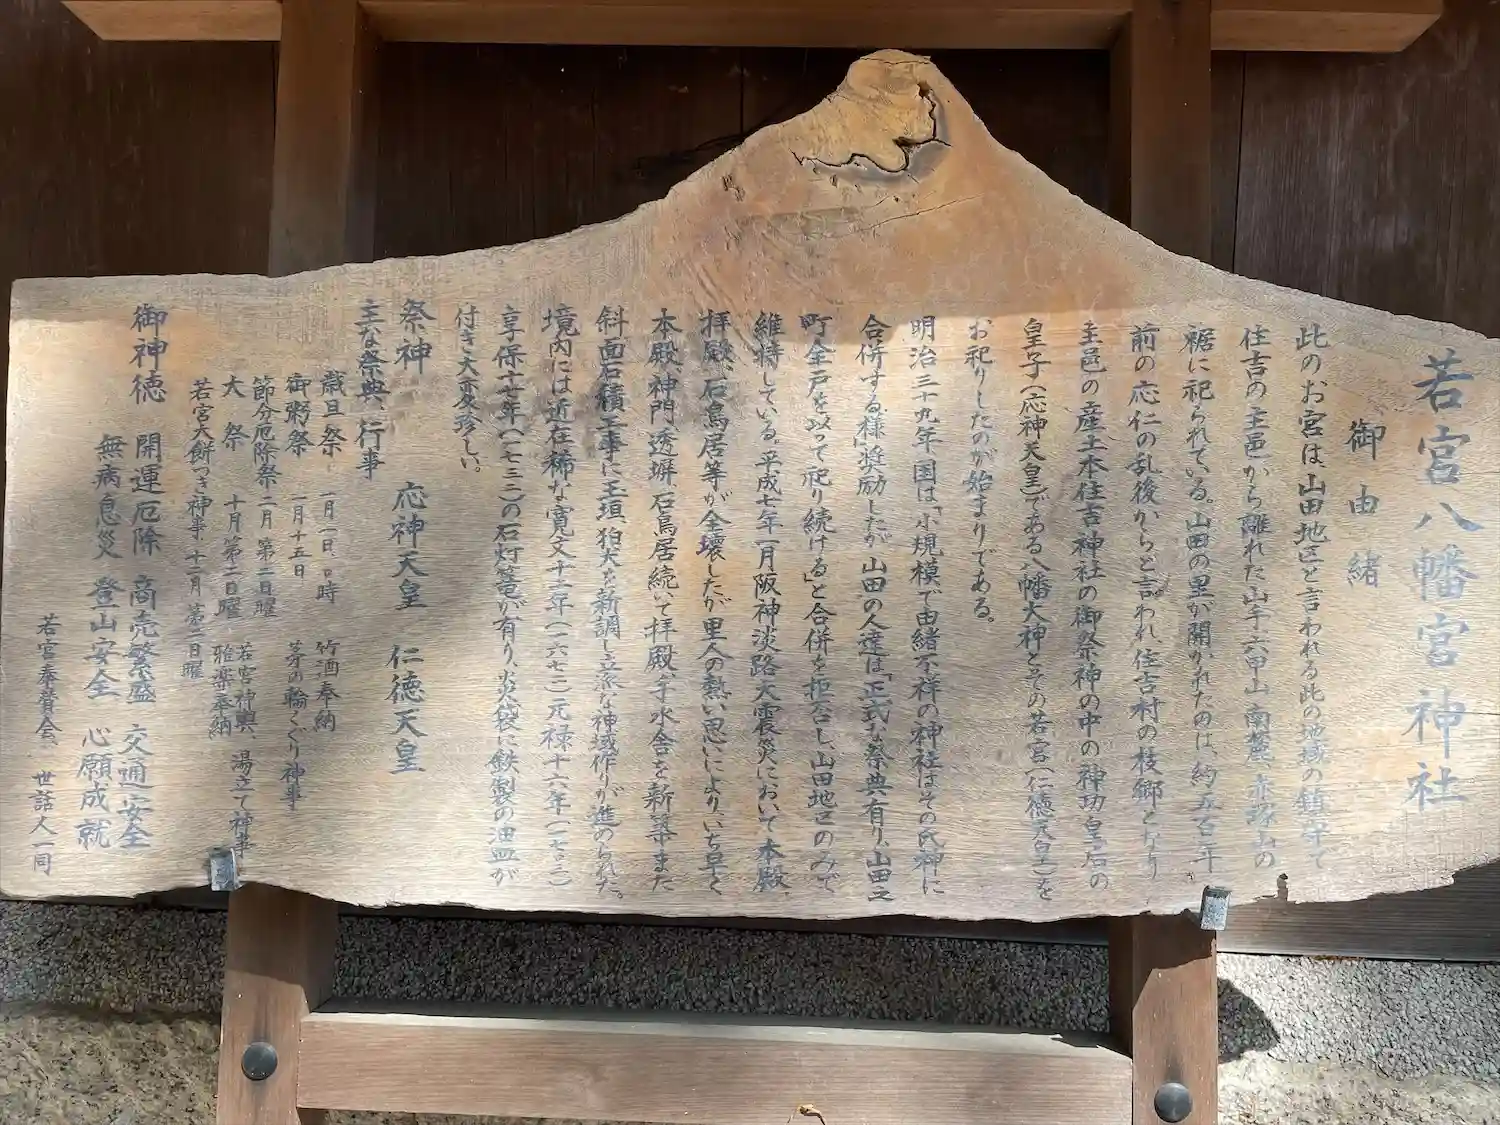 若宮八幡宮神社
御由緒
此のお宮は、山田地区と言われる此の地域の鎮守で
住吉の主邑から離れた山手、六甲山南麓、赤塚山の
裾に祀られている。山田の里が開かれたのは、約五百年
前の応仁の乱後からと言われ、住吉村の枝郷となり
主邑の産土本住吉神社の御祭神の中の神功皇后の
皇子(応神天皇)である八幡大神とその若宮(仁徳天皇)を
お祀りしたのが始まりである。
明治三十九年国は、「小規模で由緒不祥の神社はその氏神に
合併する様」奨励したが、山田の人達は「正式な祭典有り、山田之
町全戸を以って祀り続ける」と合併を拒否し、山田地区のみで
維持している。平成七年一月阪神淡路大震災において本殿、
拝殿、石鳥居等が全壊したが里人の熱い思いにより、いち早く
本殿、神門、透塀、石鳥居続いて拝殿、手水舎を新築また
斜面石積工事に玉垣、狛犬を新調し立派な神域作りが進められた。
境内には近在稀な寛文十二年(一六七二)元禄十六年(一七〇三)
享保十七年(一七三二)の石灯篭が有り、火袋に鉄製の油皿が
付き大変珍しい。
祭神 応神天皇 仁徳天皇
主な祭典、行事
歳旦祭 一月一日、〇時 竹酒奉納
御粥祭 一月十五日 茅の輪くぐり神事
節分厄除祭 二月第二日曜
大祭 十月第二日曜 若宮神輿、湯立て神事
雅楽奉納
若宮大餅つき神事、十二月第二日曜
御神徳 開運厄除 商売繁盛 交通安全
無病息災 登山安全 心願成就
若宮奉賛会、世話人一同